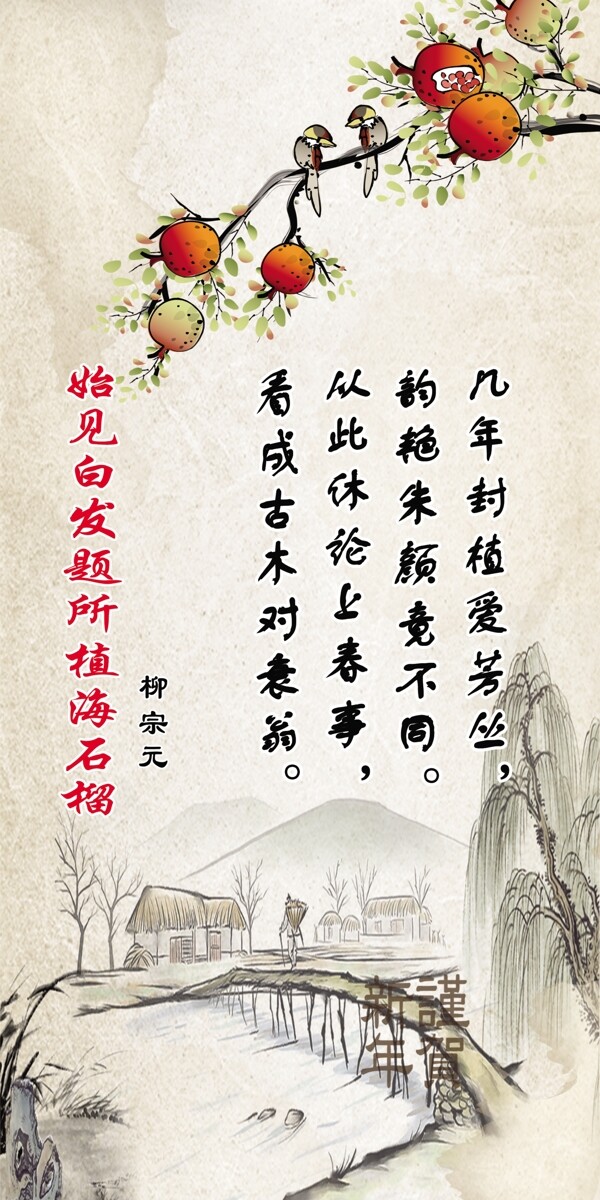 几年封植爱芳丛，
韵艳朱颜竟不同。
从此休论上春事，
看成古木对衰翁。
柳宗元
始见白发题所植海石榴
謹賀
新年